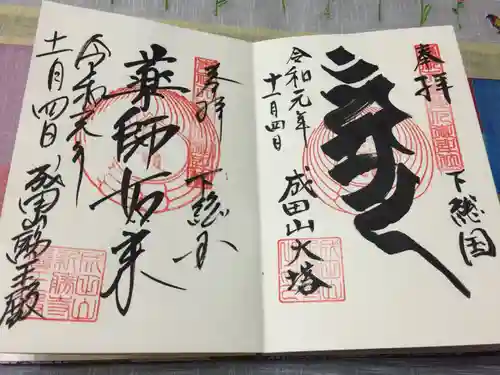 奉拝
下総国
成田山大塔
令和元年
十一月四日
奉拝
下総国
薬師如来
令和元年
十一月四日
成田山医王殿
成田山
新勝寺